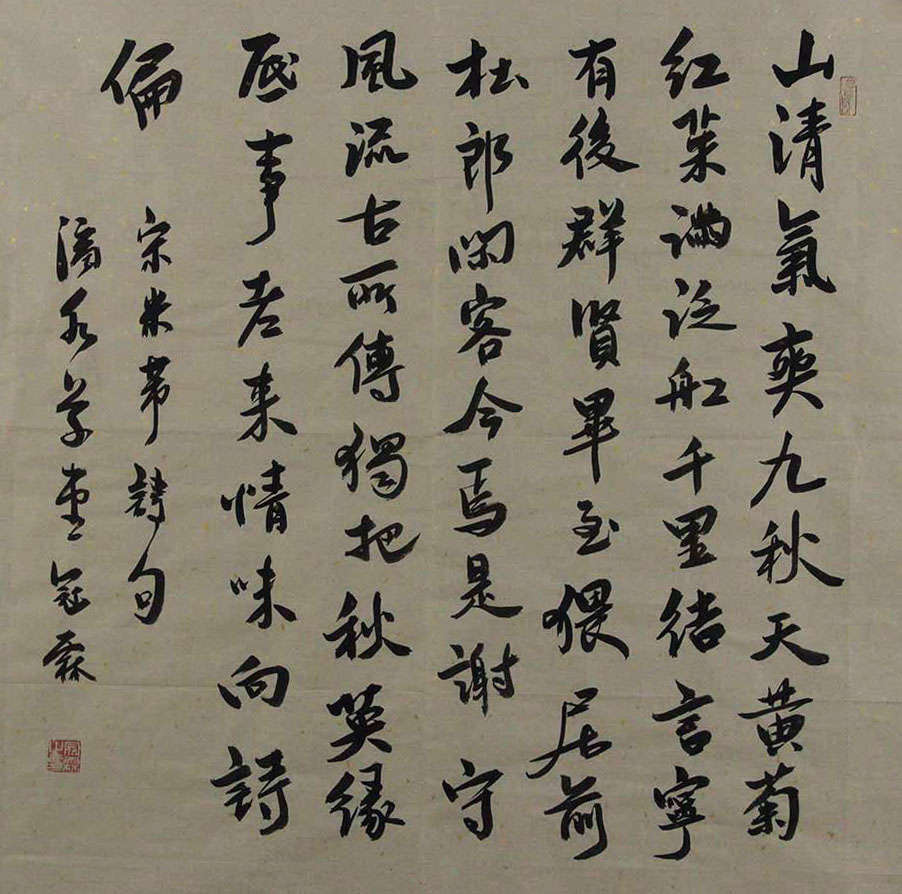 山清氣爽九秋天黄菊
红茱滿泛船千里结言寧
有後群賢畢至猥居前
杜郎閑客今焉是謝守
風流古所傳獨把秋英緣
底事老来情味向詩
偏
宋米芾詩句
水草堂冠霖